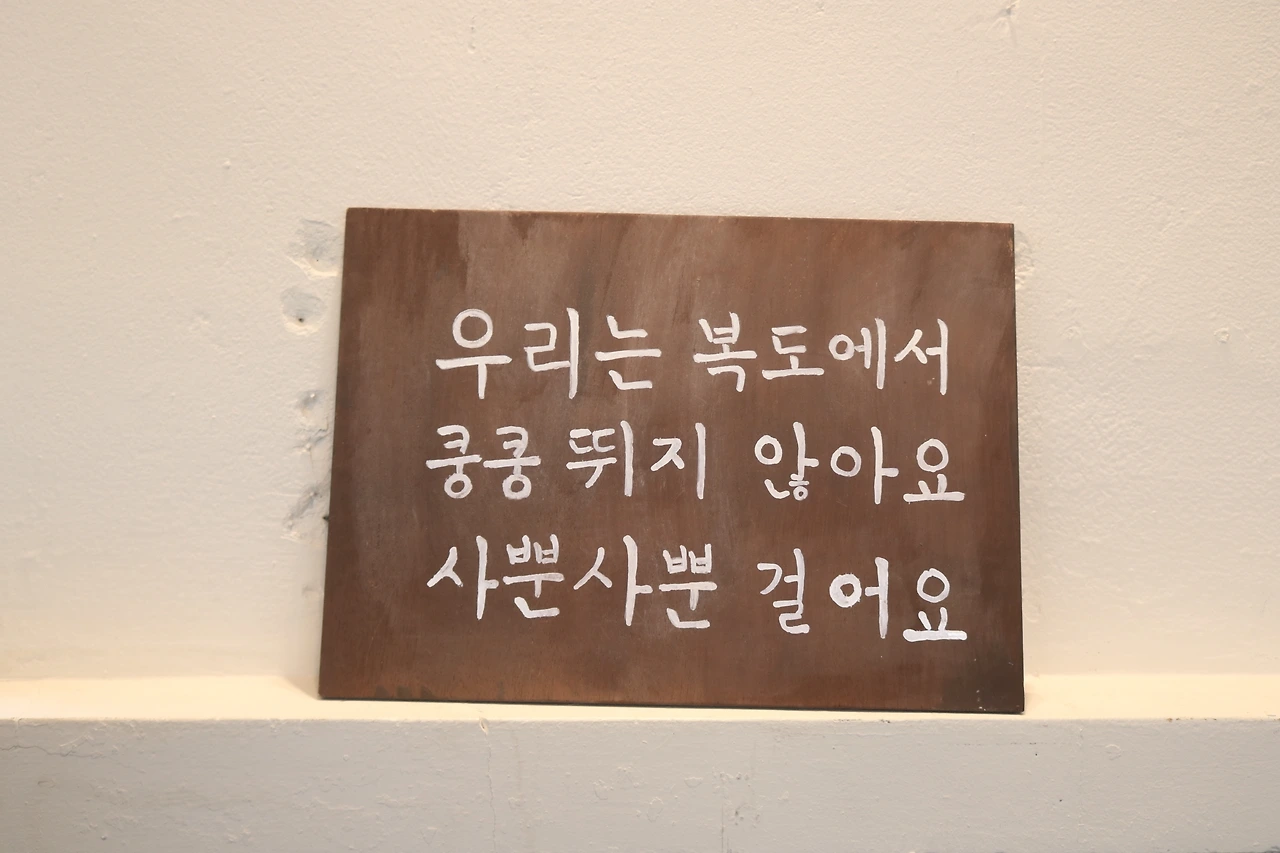 우리는 복도에서
쿵쿵 뛰지 않아요
사뿐사뿐 걸어요